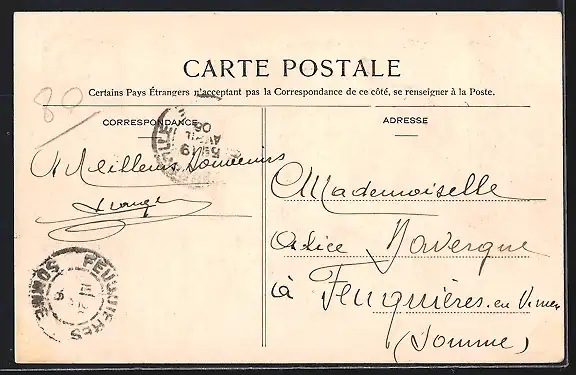 CARTE POSTALE
Certains Pays Étrangers n'acceptant pas la Correspondance de ce côté, se renseigner à la Poste.
80
CORRESPONDANCE
ADRESSE
Meilleurs Souvenirs
Mademoiselle
à Feuquières-en-Vimeu
(Somme)
FEUQUIERES
SOMME
5E 19
AVRIL
06